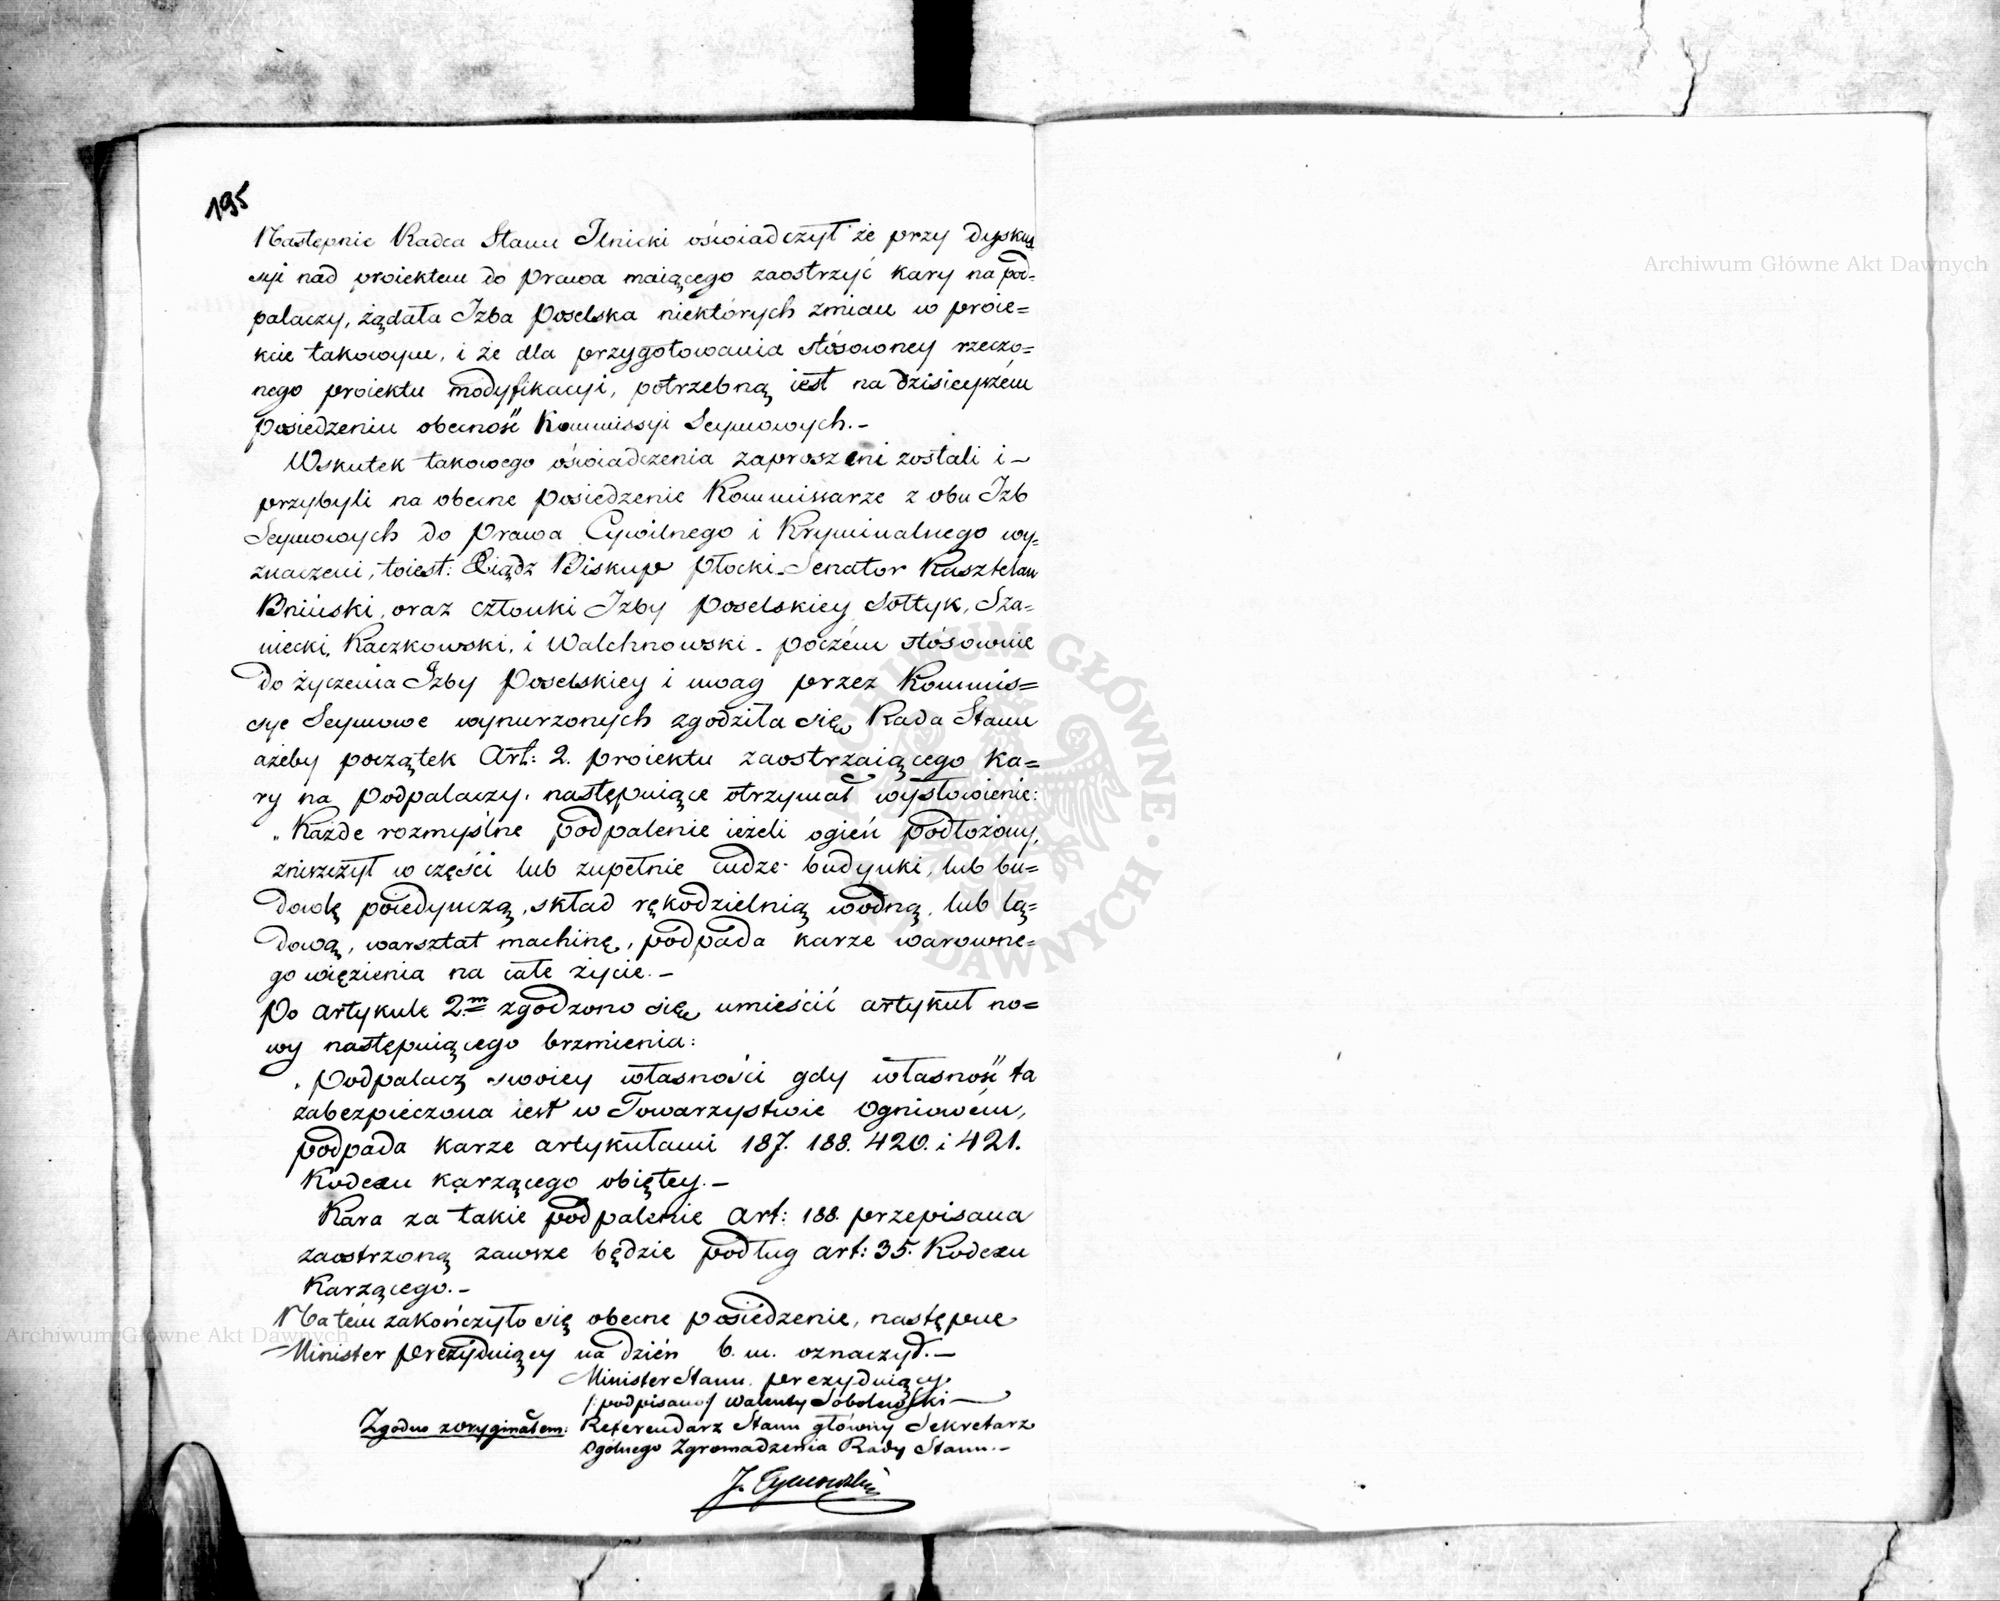 195
Następnie Radca Stanu Ilnicki oświadczył że przy dyskus
syi nad proiektem do prawa maiącego zaostrzyć kary na pod-
palaczy, żądała Izba Poselska niektórych zmian w proie=
kcie takowym, i że dla przygotowania stósowney rzeczo=
nego proiektu modyfikacyi, potrzebną iest na dzisieyszém
posiedzeniu obecność Kommissyi Seymowych.-
Wskutek takowego oświadczenia zaproszeni zostali i -
przybyli na obecne posiedzenie Kommissarze z obu Izb
Seymowych do Prawa Cywilnego i Kryminalnego wy=
znaczeni, toiest: Xiądz Biskup Płocki Senator Kasztelan
Bniński, oraz członki Izby Poselskiey Sołtyk, Sza=
niecki, Kaczkowski, i Walchnowski - poczém stósownie
do życzenia Izby Poselskiey i uwag przez Kommis=
sye Seymowe wynurzonych zgodziła się Rada Stanu
ażeby początek Art: 2. proiektu zaostrzaiącego ka=
ry na podpalaczy, następuiące otrzymał wysłowienie:
„Każde rozmyślne podpalenie ieżeli ogień podłożony,
zniszczył w części lub zupełnie cudze budynki, lub bu=
dowlę poiedynczą, skład rękodzielnią wodną, lub lą=
dową, warsztat machinę, podpada karze warowne=
go więzienia na całe życie.-
Po artykule 2m zgodzono się umieścić artykuł no=
wy następuiącego brzmienia:
„Podpalacz swoiey własności gdy własność ta
zabezpieczona iest w Towarzystwie Ogniowém,
podpada karze artykułami 187. 188. 420. i 421.
Kodexu karzącego obiętey.-
Kara za takie podpalenie art: 188. przepisana
zaostrzoną zawsze będzie podług art: 35. Kodexu
Karzącego.-
Na tém zakończyło się obecne posiedzenie, następne
Minister prezyduiący na dzień 6. m. oznaczył.-
Minister Stanu prezyduiący
/podpisano/ Walenty Sobolewski
Zgodno z oryginałem: Referendarz Stanu główny Sekretarz
Ogólnego Zgromadzenia Rady Stanu.-
Archiwum Główne Akt Dawnych
Archiwum Główne Akt Dawnych
ARCHIWUM GŁÓWNE AKT DAWNYCH